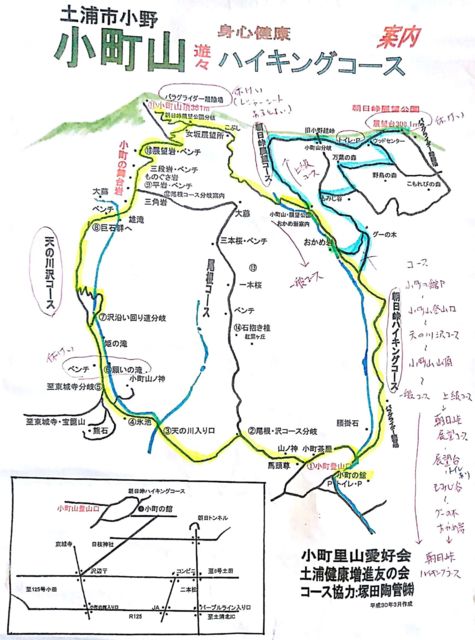 土浦市小野
身心健康
案内
小町山
遊々
ハイキングコース
パラグライダー離陸場
⑪小町山頂361m
朝日峠展望公園分岐
こぶし
女坂展望所
⑩展望岩・ベンチ
小町の舞台岩
三段岩・ベンチ
ものぐさ岩
⑨平岩・ベンチ
三角岩
⑫尾根コース分岐案内
大藤
ベンチ
雄滝
⑧巨石群へ
大藤
三本桜・ベンチ
⑬
一本桜
ベンチ
⑭石抱き桂
尾根コース
天の川沢コース
⑦沢沿い回り道分岐
姫の滝
休けい
ベンチ
⑥願いの滝
小町山ノ神
至東城寺分岐⑤
至東城寺・宝篋山
熊石
④氷池
③天の川入り口
②尾根・沢コース分岐
山ノ神
小町茶屋
馬頭尊
①小町登山口
小町の館
トイレ・P
腰掛石
朝日峠展望公園
展望台300.1m
休けい
旧小野越峠
トイレ・P
ウッドセンター
小町山分岐
万葉の森
野鳥の森
こもれびの森
もみじ谷
グーの木
朝日峠展望コース
上級コース
小町山・展望公園
おかめ岩案内
おかめ岩
一般コース
朝日峠ハイキングコース
コース
小町の館P
小町山登山口
天の川沢コース
小町山山頂
一般コース
上級コース
朝日峠
展望コース
展望台
トイレあり
もみじ谷
グーの木
おかめ岩
朝日峠
ハイキングコース
朝日峠ハイキングコース
小町山登山口
小町の館
朝日トンネル
東城寺
日枝神社
沢辺
コンビニ
至8号土田
至125号小田
二本松
R125
JA
パープルライン入り口
至土浦北IC
小町里山愛好会
土浦健康増進友の会
コース協力:塚田陶管㈱
平成30年3月作成